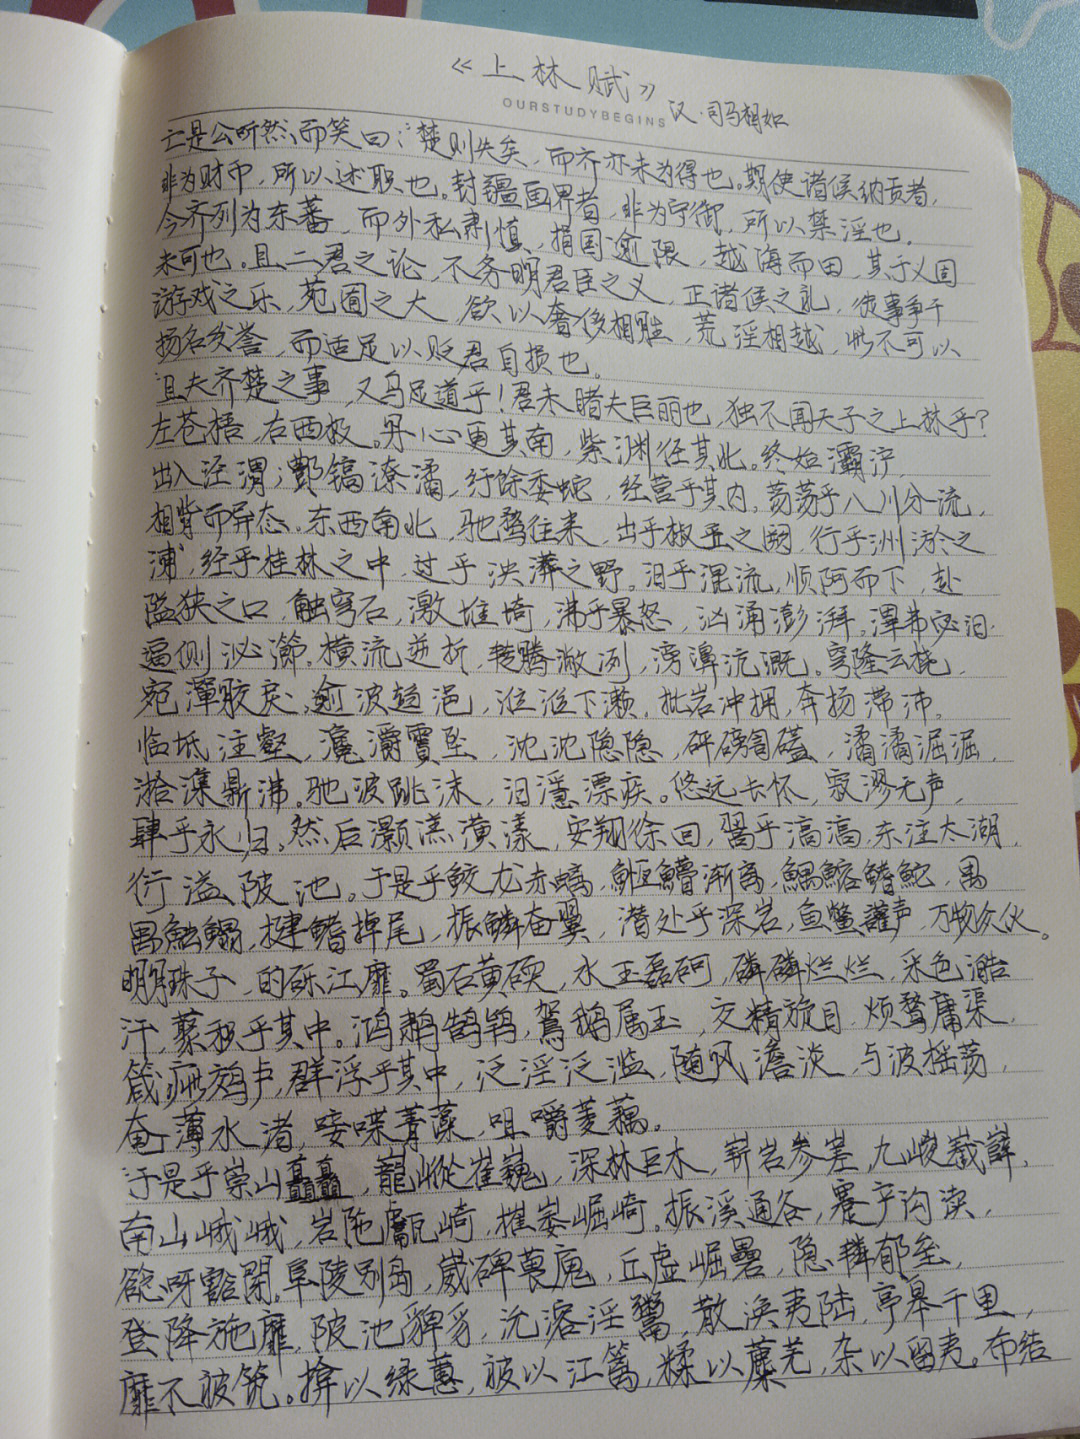 《上林赋》
OURSTUDYBEGINS 汉·司马相如
亡是公听然而笑曰："楚则失矣，而齐亦未为得也。夫使诸侯纳贡者，
非为财币，所以述职也。封疆画界者，非为守御，所以禁淫也。
今齐列为东蕃，而外私肃慎，捐国逾限，越海而田，其于义固
未可也。且二君之论，不务明君臣之义，正诸侯之礼，徒事争于
游戏之乐，苑囿之大，欲以奢侈相胜，荒淫相越，此不可以
扬名发誉，而适足以贬君自损也。
且夫齐楚之事，又乌足道乎！君未睹夫巨丽也，独不闻天子之上林乎？
左苍梧，右西极。丹心更其南，紫渊径其北。终始灞浐，
出入泾渭；酆镐潦潏，纡馀委蛇，经营乎其内。荡荡乎八川分流，
相背而异态。东西南北，驰骛往来，出乎椒丘之阙，行乎洲淤之
浦，经乎桂林之中，过乎泱漭之野。汩乎混流，顺阿而下，赴
隘狭之口，触穹石，激堆埼，沸乎暴怒，汹涌澎湃。滭弗宓汩，
逼侧泌瀄。横流逆折，转腾潎洌，滂濞沆溉。穹隆云桡，
宛潬胶戾，逾波趋浥，涖涖下濑，批岩冲拥，奔扬滞沛。
临坻注壑，瀺灂霣坠，沈沈隐隐，砰磅訇礚，潏潏淈淈，
湁潗鼎沸。驰波跳沫，汩㴔漂疾。悠远长怀，寂漻无声，
肆乎永归。然后灏溔潢漾，安翔徐回，翯乎滈滈，东注太湖，
衍溢陂池。于是乎鲛龙赤螭，䱭䲛渐离，鰅鰫鳍鮀，禺
禺魼鳎，揵鳍掉尾，振鳞奋翼，潜处乎深岩，鱼鳖讙声，万物众伙。
明月珠子，的砾江靡。蜀石黄碝，水玉磊砢，磷磷烂烂，采色澔
汗，藂积乎其中。鸿鹔鹄鸨，鴐鹅属玉，交精旋目，烦鹜庸渠，
箴疵鵁卢，群浮乎其中，泛淫泛滥，随风澹淡，与波摇荡，
奄薄水渚，唼喋菁藻，咀嚼菱藕。
于是乎崇山矗矗，巃嵷崔巍，深林巨木，崭岩参差，九嵕嶻嶭，
南山峨峨，岩陁甗崎，摧崣崛崎。振溪通谷，蹇产沟渎，
谽呀豁閜。阜陵别岛，崴磈㟪廆，丘虚崛礨，隐辚郁垒，
登降施靡，陂池貏豸，沇溶淫鬻，散涣夷陆，亭皋千里，
靡不被筑。揜以绿蕙，被以江蓠，糅以蘪芜，杂以留夷。布结